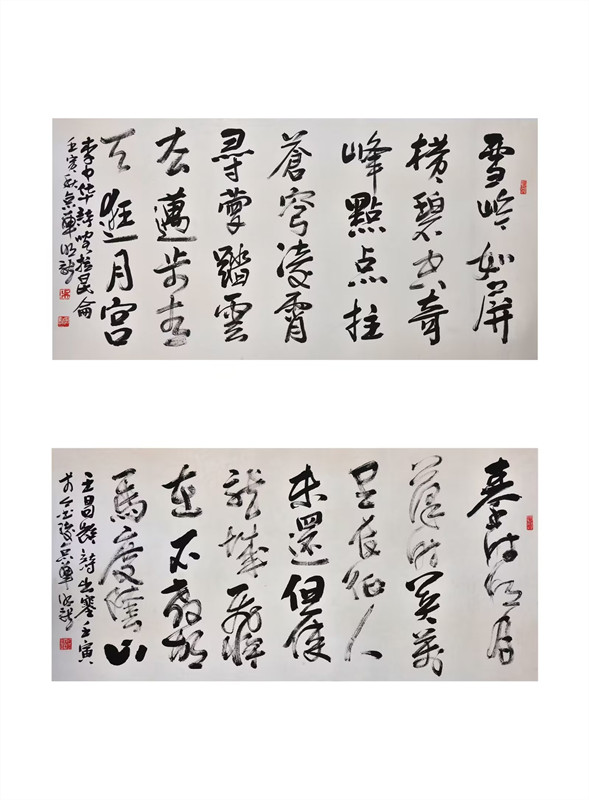 雪嶺如屏
碧空奇
峰點点柱
蒼穹凌霄
尋夢踏雲
去邁步青
天逛月宫
李中华詩喀拉昆侖
壬寅秋
秦時明月
漢時關萬
里長征人
未還但使
龍城飛將
在不教胡
馬度陰山
王昌齡詩出塞壬寅